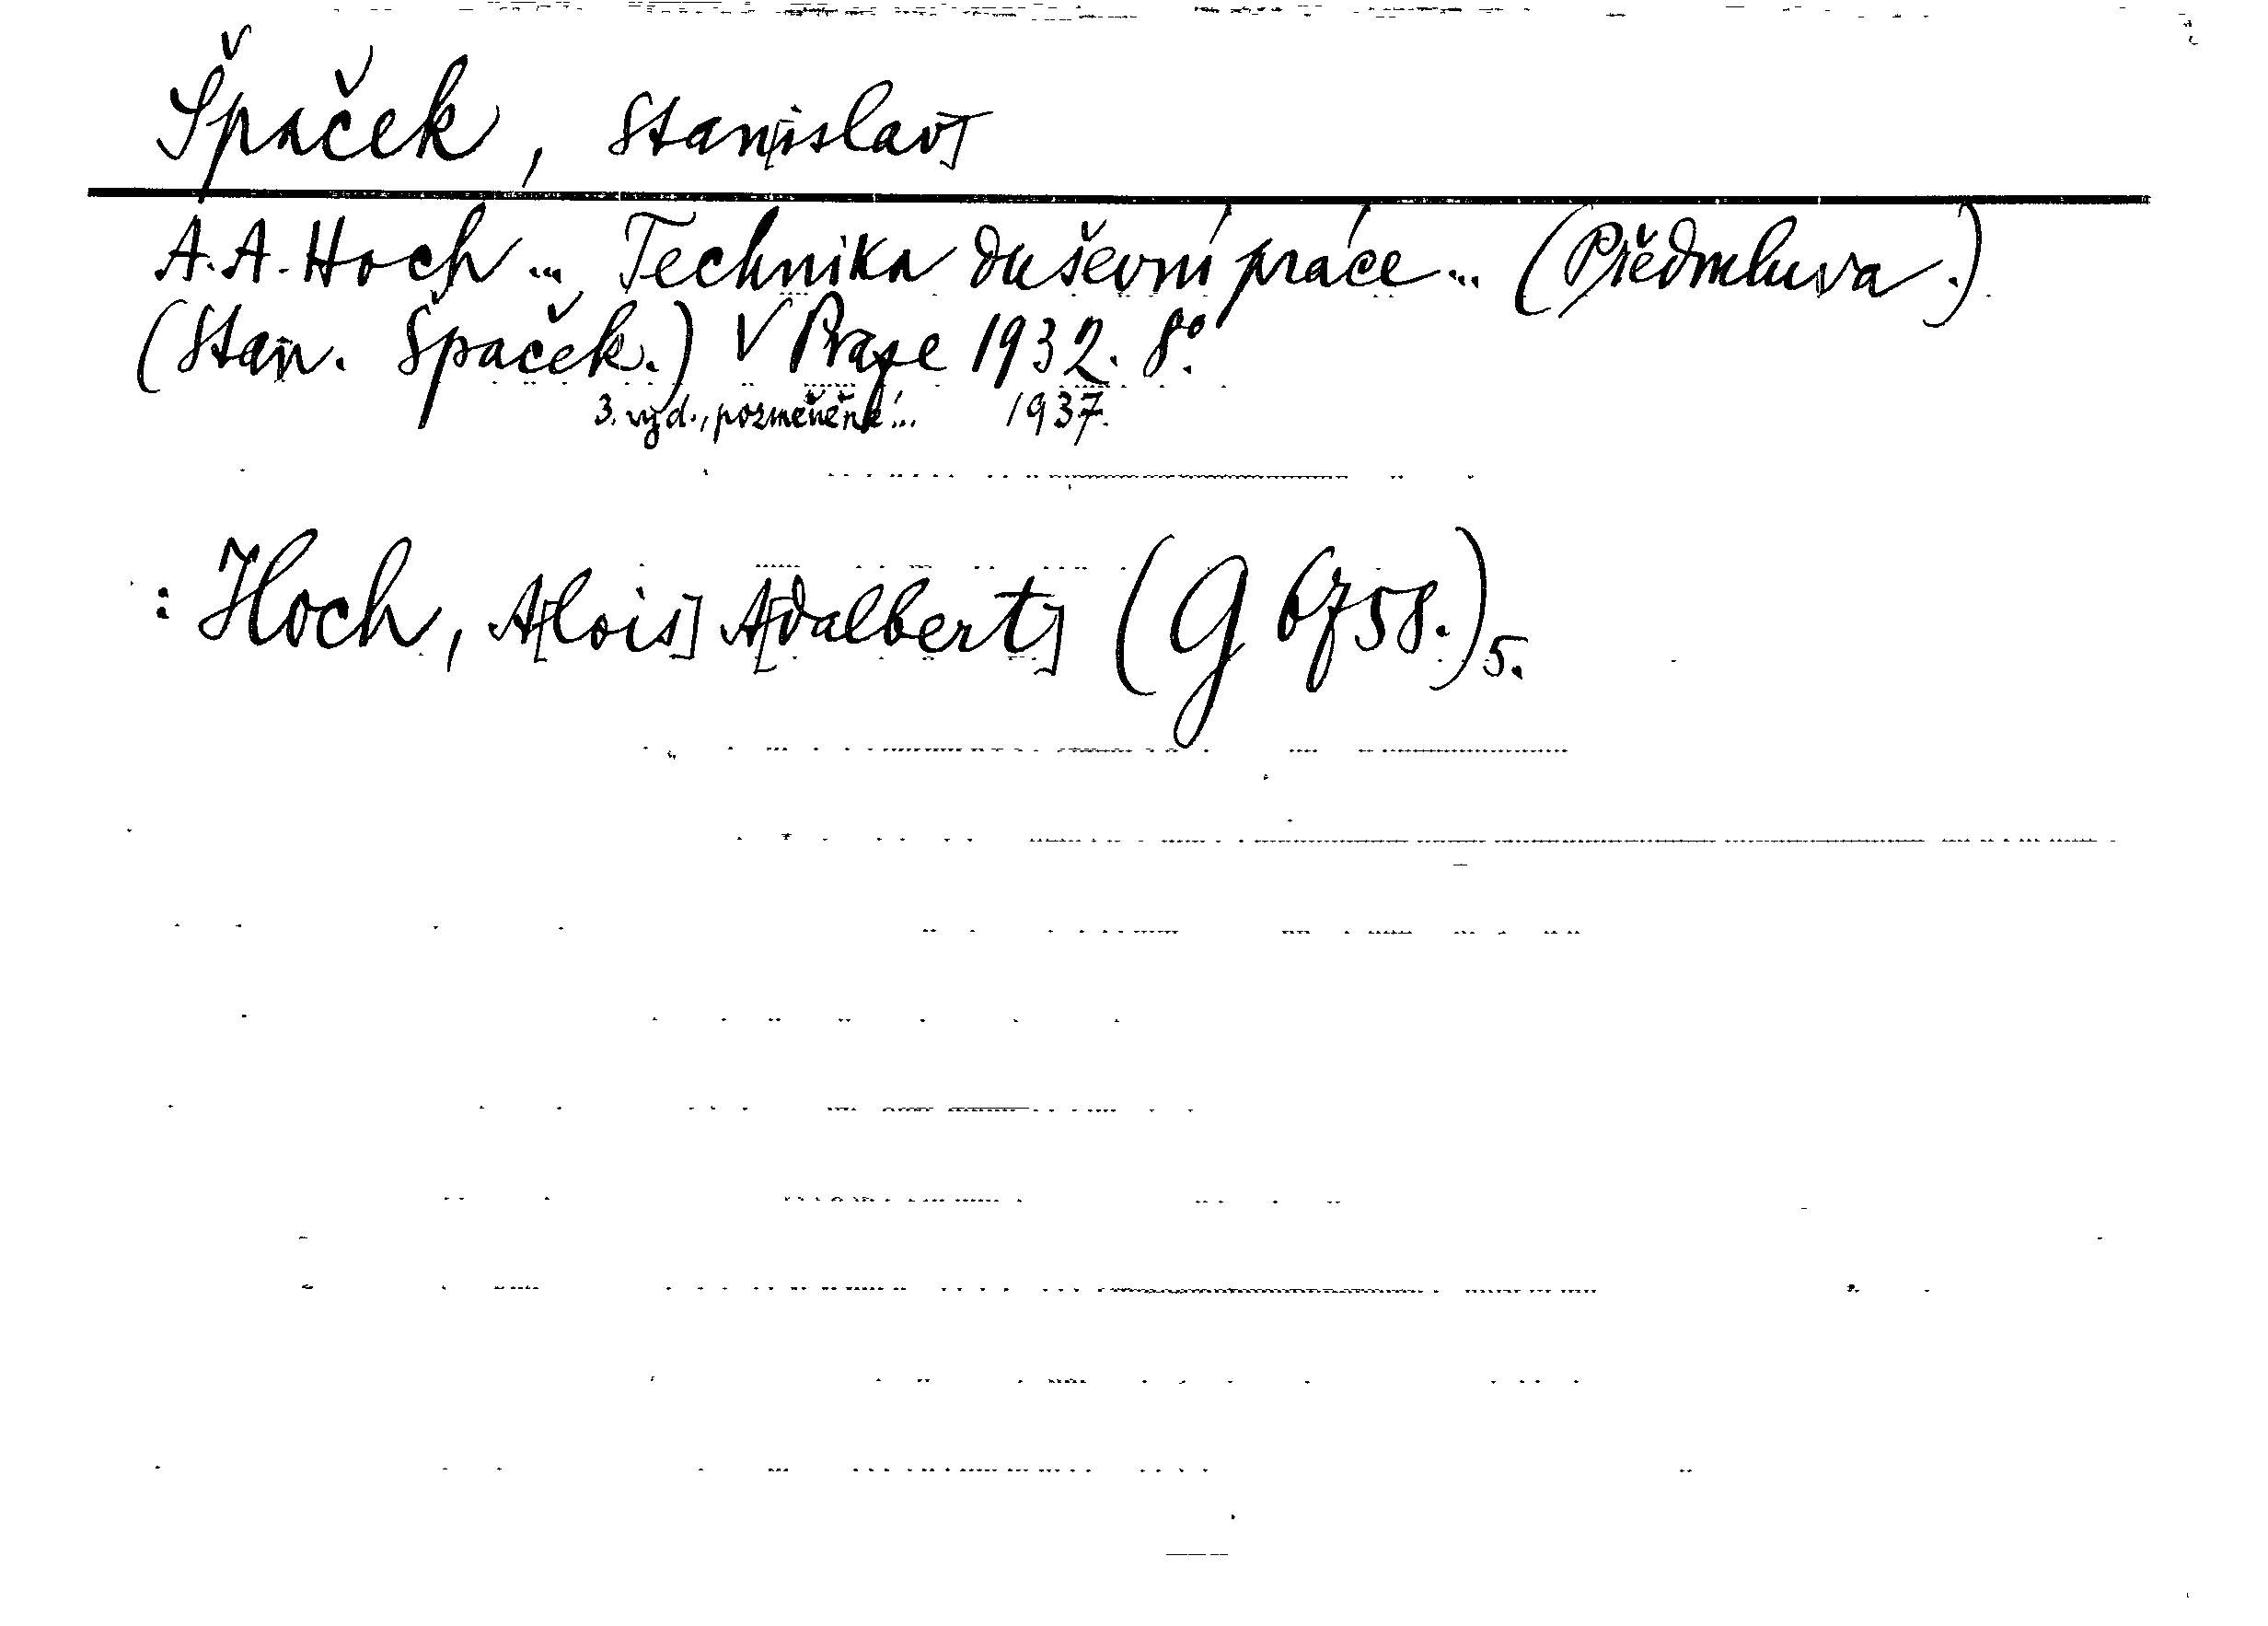 Špaček, Stan[islav]
A. A. Hoch ... Technika duševní práce ... (Předmluva.)
(Stan. Špaček.) V Praze 1932. 8°.
3. vyd., pozměněné ... 1937.
: Hoch, A[lois] A[dalbert] (G 6758.) 5.